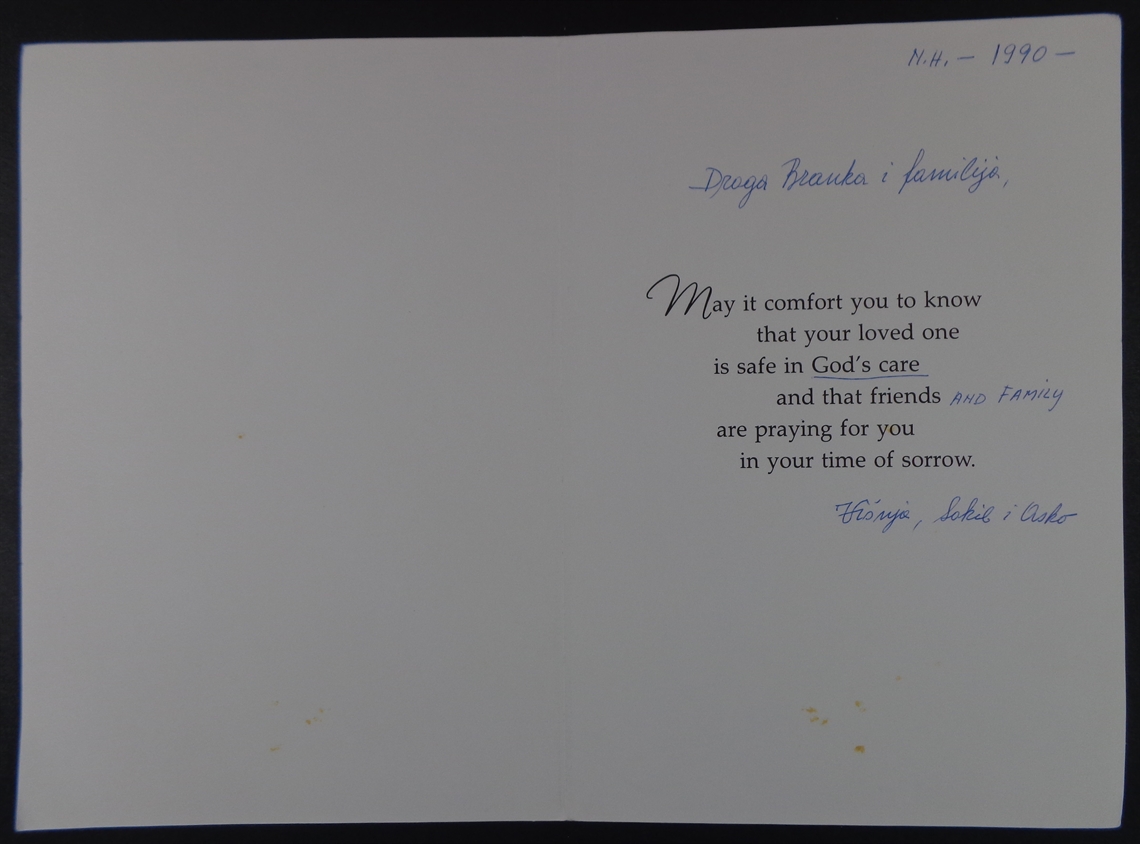 N.H. — 1990 —
Draga Branka i familija,
May it comfort you to know
that your loved one
is safe in God's care
and that friends AND FAMILY
are praying for you
in your time of sorrow.
Višnja, Sakib i Asko